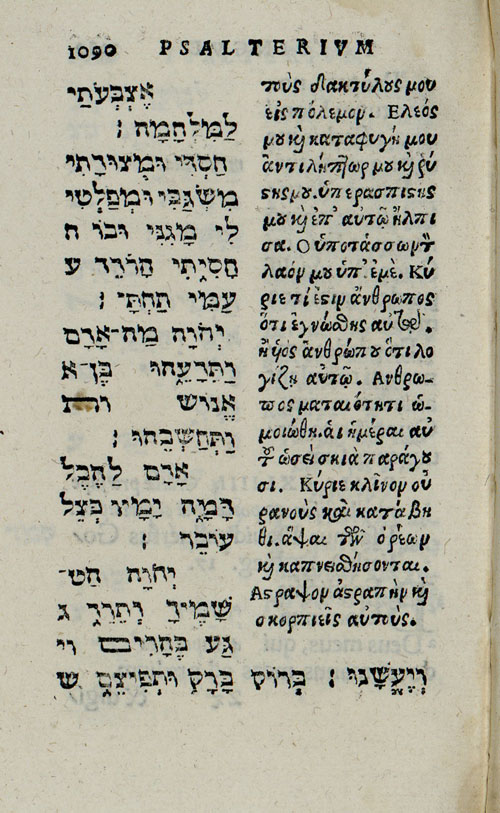 1090 PSALTERIVM
אֶצְבְּעֹתַי
לַמִּלְחָמָה :
חַסְדִּי וּמְצוּדָתִי
מִשְׂגַּבִּי וּמְפַלְטִי
לִי מָגִנִּי וּבוֹ ח
חָסִיתִי הָרוֹדֵד ע
עַמִּי תַחְתָּי :
יְהוָֹה מַה־אָדָם
וַתֵּדָעֵהוּ בֶּן־א
אֱנוֹשׁ
וַתְּחַשְּׁבֵהוּ :
אָדָם לַהֶבֶל
דָּמָה יָמָיו כְּצֵל
עוֹבֵר :
יְהוָֹה הַט־
שָׁמֶיךָ וְתֵרֵד ג
גַּע בֶּהָרִים וי
וְיֶעֱשָׁנוּ : בְּרוֹק בָּרָק וּתְפִיצֵם שׁ
τοὺς δακτύλους μου
εἰς πόλεμον. Ελεός
μου ϗ καταφυγή μου
ἀντιλήπτωρ μου ϗ ῥύ
στης μου. ὑπερασπιστής
μου ϗ ἐπ' αὐτῷ ἤλπι
σα. Ο ὑποτάσσων τὸν
λαόν μου ὑπ' ἐμέ. Κύ
ριε τί ἐστιν ἄνθρωπος
ὅτι ἐγνώσθης αὐτῷ.
ἢ υἱὸς ἀνθρώπου ὅτι λο
γίζη αὐτῷ. Ανθρω-
πος ματαιότητι ὡ-
μοιώθη. αἱ ἡμέραι αὐ
τοῦ ὡσεὶ σκιὰ παράγου
σι. Κύριε κλῖνον οὐ
ρανοὺς καὶ κατάβη
θι. ἅψαι τῶν ὀρέων
ϗ καπνισθήσονται.
Αστραψον ἀστραπὴν ϗ
σκορπιεῖς αὐτούς.